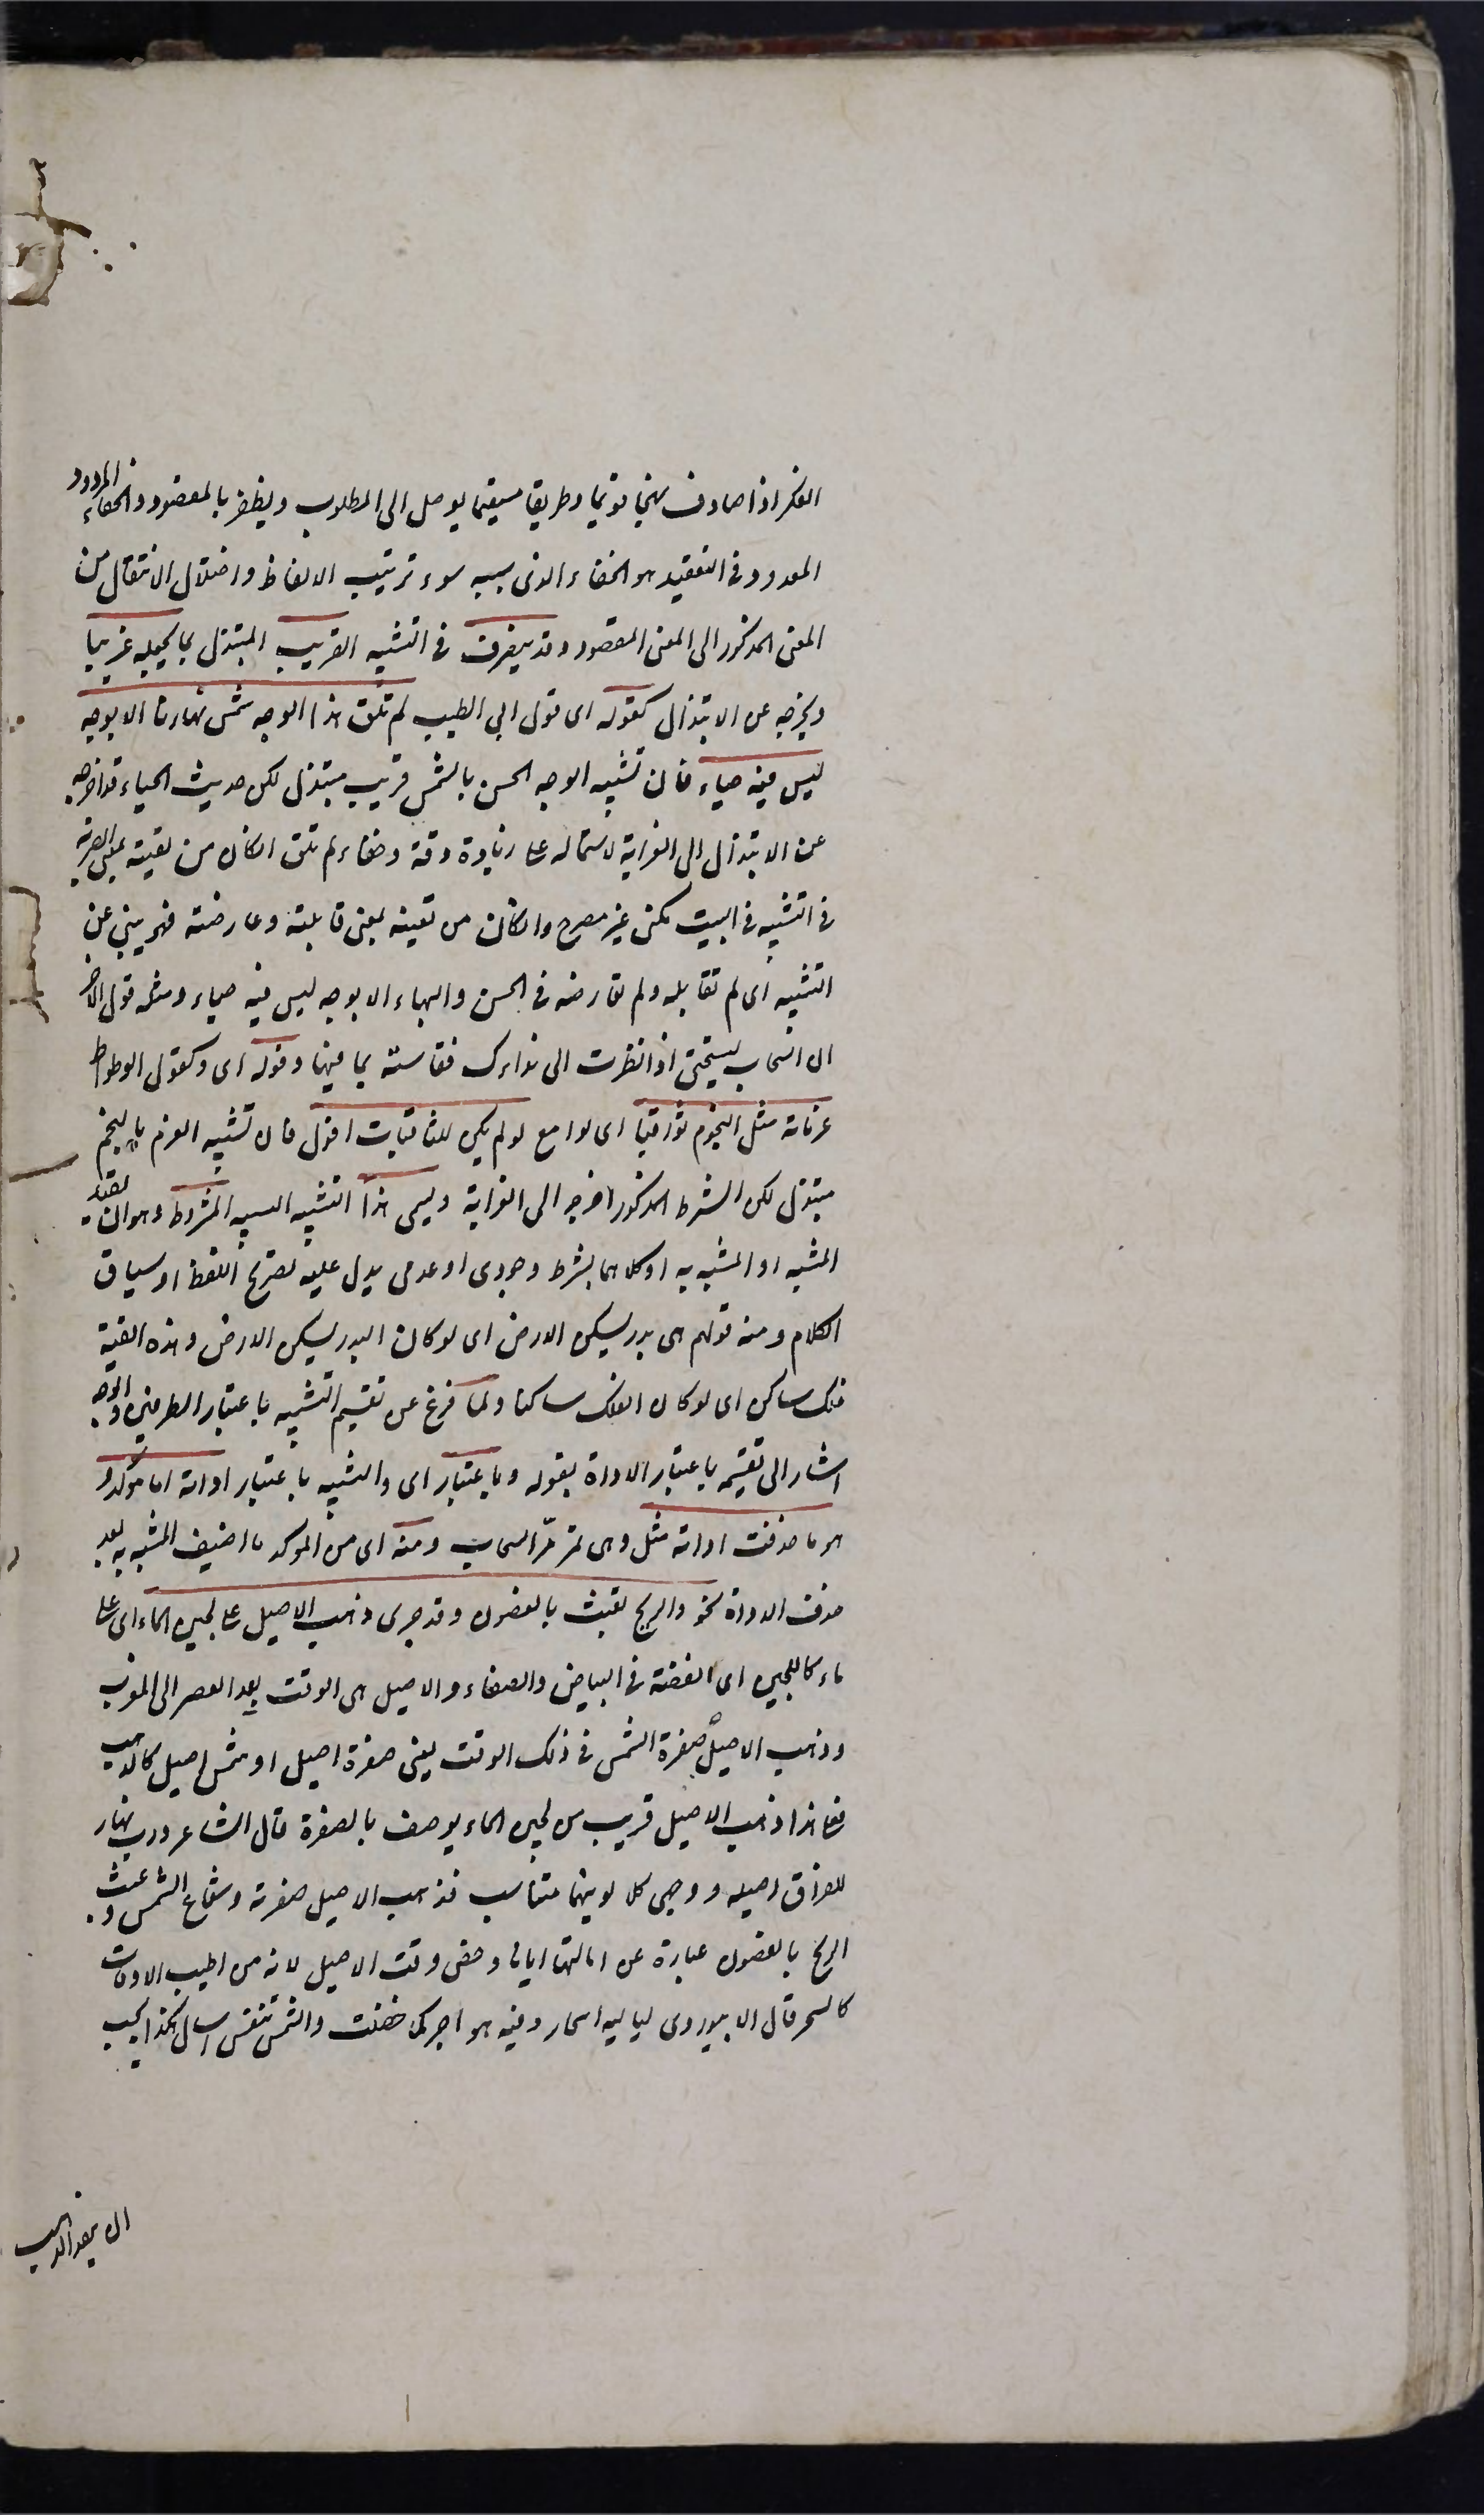 الفكر اذا صادف نهجا قويما وطريقا مستقيما يوصل الى المطلوب ويظفر بالمقصود والخفاء المردود
المعدود فى التعقيد هو الخفاء الذى سببه سوء ترتيب الالفاظ واختلال الانتقال من
المعنى المذكور الى المعنى المقصود وقد يتصرف فى التشبيه القريب المبتذل بما يجعله غريبا
ويخرجه عن الابتذال كقوله اى قول ابى الطيب لم تلق هذا الوجه شمس نهارنا الا بوجه
ليس فيه حياء فان تشبيه الوجه الحسن بالشمس قريب مبتذل لكن حديث الحياء قد اخرجه
عن الابتذال الى الغرابة لاشتماله على زيادة دقة وخفاء ولم تلق ان كان من لقيته بمعنى ابصرته
فالتشبيه فى البيت مكنى غير مصرح وان كان من لقيته بمعنى قابلته وعارضته فهو ينبئ عن
التشبيه اى لم تقابله ولم تعارضه فى الحسن والبهاء الا بوجه ليس فيه حياء ومثله قول الاخر
ان السحاب لتستحيى اذا نظرت الى نداك فقاسته بما فيها وقوله اى وكقول الوطواط
عزماته مثل النجوم ثواقبا اى لوامع لو لم يكن للثاقبات افول فان تشبيه العزم بالنجم
مبتذل لكن الشرط المذكور اخرجه الى الغرابة ويسمى هذا التشبيه التشبيه المشروط وهو ان يقيد
المشبه او المشبه به او كلاهما بشرط وجودى او عدمى يدل عليه بصريح اللفظ او سياق
الكلام ومنه قولهم هى بدر يسكن الارض اى لو كان البدر يسكن الارض وهذه القبة
فلك ساكن اى لو كان الفلك ساكنا ولما فرغ عن تقسيم التشبيه باعتبار الطرفين والوجه
اشار الى تقسيمه باعتبار الاداة بقوله وباعتبار اى والتشبيه باعتبار اداته اما مؤكد و
هو ما حذفت اداته مثل وهى تمر مرّ السحاب ومنه اى من المؤكد ما اضيف المشبه به بعد
حذف الاداة نحو والريح تعبث بالغصون وقد جرى ذهب الاصيل على لجين الماء اى على
ماء كاللجين اى الفضة فى البياض والصفاء والاصيل هى الوقت بعد العصر الى المغرب
وذهب الاصيل صفرة الشمس فى ذلك الوقت يعنى صفرة اصيل او شمس اصيل كالذهب
فعلى هذا ذهب الاصيل قريب من لجين الماء يوصف بالصفرة قال الشاعر ورب نهار
للفراق اصيله ووجهى كلا لونيهما متناسب فذهب الاصيل صفرته وشعاع الشمس وعبث
الريح بالغصون عبارة عن امالتها اياها وخص وقت الاصيل لانه من اطيب الاوقات
كالسحر قال الابيوردى لياليه اسحار وفيه هواجر كما خضلت والشمس تنفس اصال كذا يجب
ان يفهم الذهب